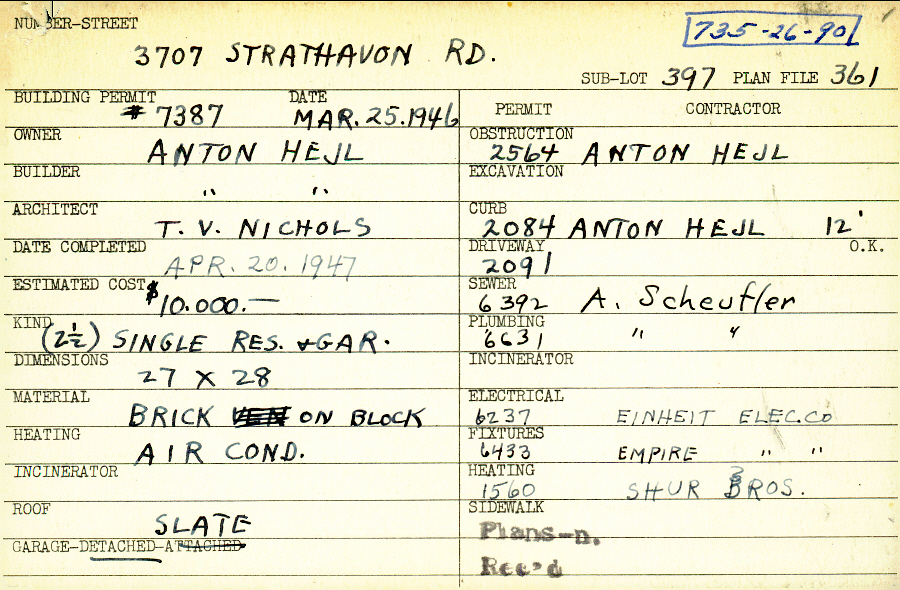 NUMBER-STREET
735-26-90
3707 STRATHAVON RD.
SUB-LOT 397 PLAN FILE 361
BUILDING PERMIT DATE
# 7387 MAR. 25. 1946
OWNER
ANTON HEJL
BUILDER
" "
ARCHITECT
T. V. NICHOLS
DATE COMPLETED
APR. 20. 1947
ESTIMATED COST
$10.000.—
KIND
(2½) SINGLE RES. & GAR.
DIMENSIONS
27 X 28
MATERIAL
BRICK VEN ON BLOCK
HEATING
AIR COND.
INCINERATOR
ROOF
SLATE
GARAGE-DETACHED-ATTACHED
PERMIT CONTRACTOR
OBSTRUCTION
2564 ANTON HEJL
EXCAVATION
CURB
2084 ANTON HEJL 12'
DRIVEWAY O.K.
2091
SEWER
6392 A. Scheuffler
PLUMBING
6631 " "
INCINERATOR
ELECTRICAL
6237 EINHEIT ELEC. CO
FIXTURES
6433 EMPIRE " "
HEATING
1560 SHUR BROS.
SIDEWALK
Plans-n.
Rec'd